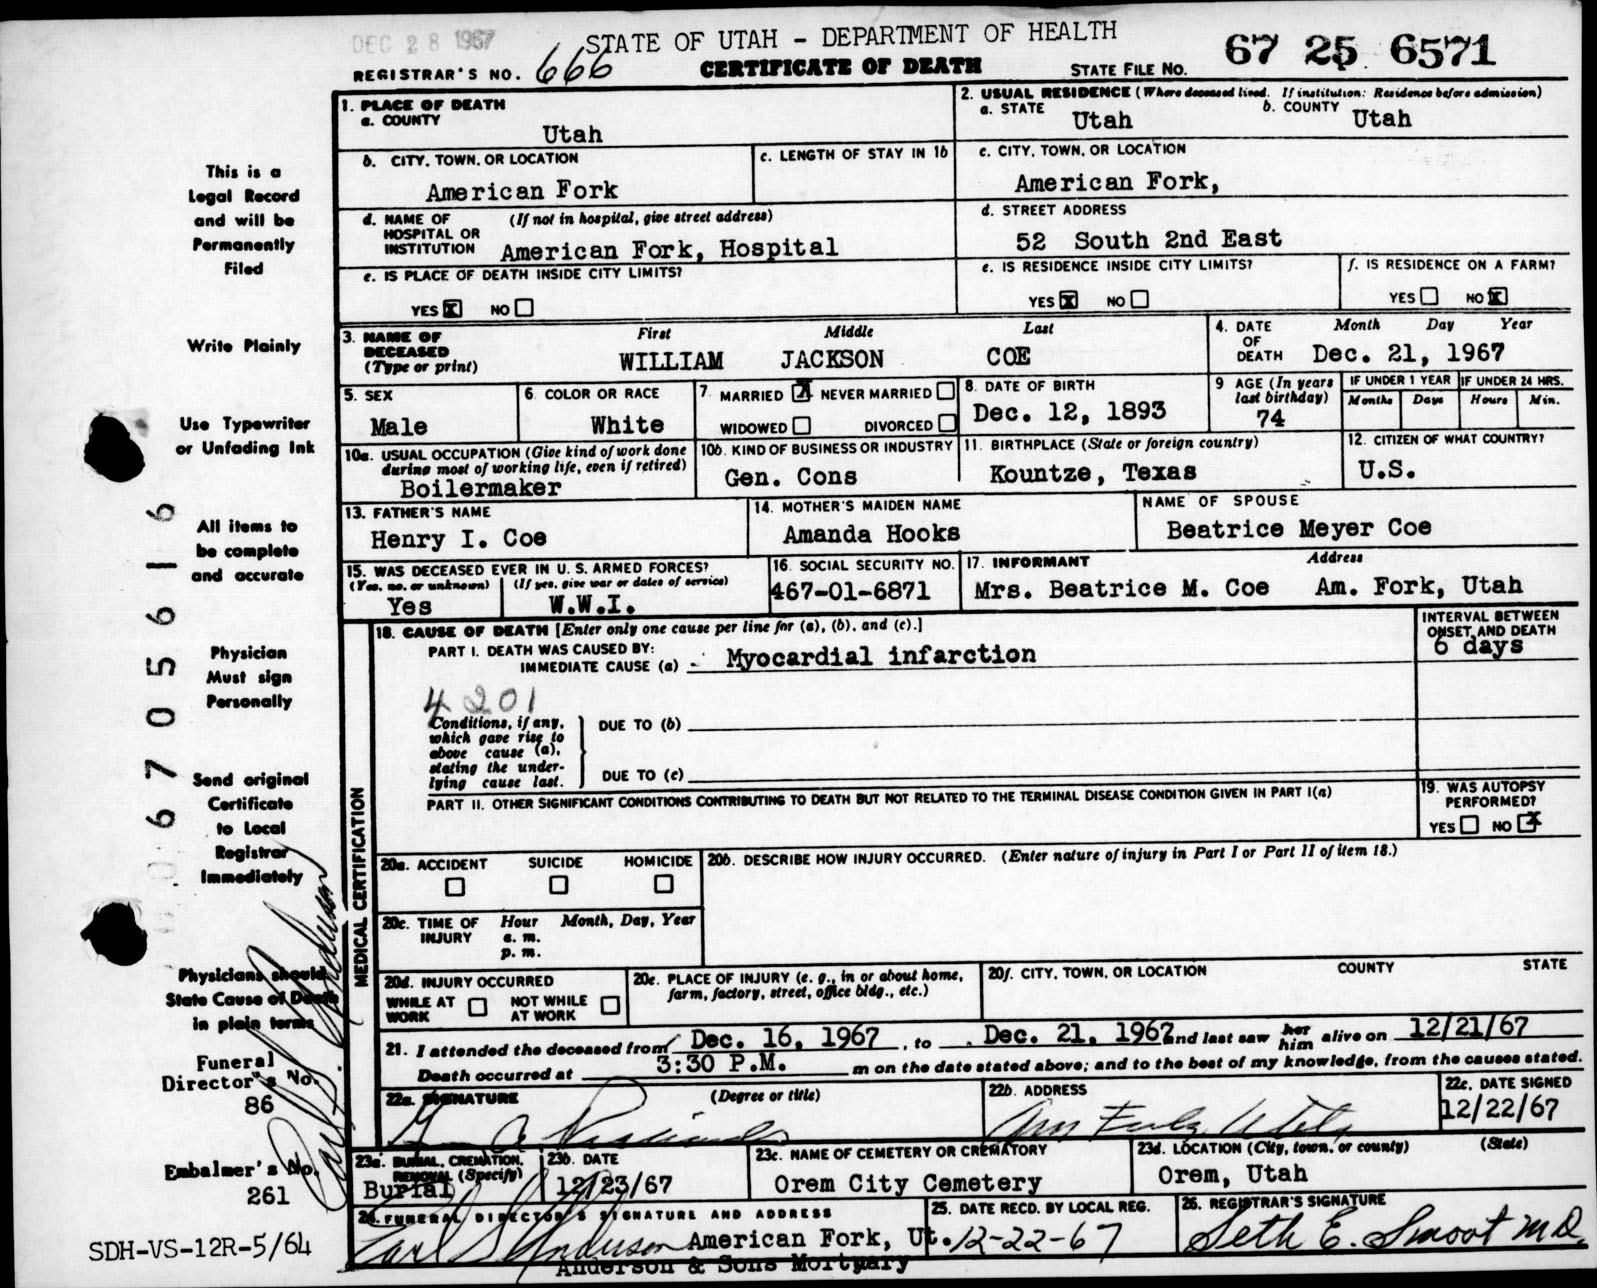 DEC 28 1967
STATE OF UTAH - DEPARTMENT OF HEALTH
REGISTRAR'S NO. 666
CERTIFICATE OF DEATH
STATE FILE NO. 67 25 6571
This is a
Legal Record
and will be
Permanently
Filed
Write Plainly
Use Typewriter
or Unfading Ink
All items to
be complete
and accurate
Physician
Must sign
Personally
Send original
Certificate
to Local
Registrar
Immediately
Physicians should
State Cause of Death
in plain terms
Funeral
Director's No.
86
Embalmer's No.
261
SDH-VS-12R-5/64
06705616
1. PLACE OF DEATH
a. COUNTY
Utah
2. USUAL RESIDENCE (Where deceased lived. If institution: Residence before admission)
a. STATE Utah
b. COUNTY Utah
b. CITY, TOWN, OR LOCATION
American Fork
c. LENGTH OF STAY IN 1b
c. CITY, TOWN, OR LOCATION
American Fork,
d. NAME OF HOSPITAL OR INSTITUTION (If not in hospital, give street address)
American Fork, Hospital
d. STREET ADDRESS
52 South 2nd East
e. IS PLACE OF DEATH INSIDE CITY LIMITS?
YES X NO
e. IS RESIDENCE INSIDE CITY LIMITS?
YES X NO
f. IS RESIDENCE ON A FARM?
YES NO X
3. NAME OF DECEASED (Type or print)
First Middle Last
WILLIAM JACKSON COE
4. DATE OF DEATH
Month Day Year
Dec. 21, 1967
5. SEX
Male
6. COLOR OR RACE
White
7. MARRIED X NEVER MARRIED
WIDOWED DIVORCED
8. DATE OF BIRTH
Dec. 12, 1893
9 AGE (In years last birthday)
74
IF UNDER 1 YEAR
Months Days
IF UNDER 24 HRS.
Hours Min.
10a. USUAL OCCUPATION (Give kind of work done during most of working life, even if retired)
Boilermaker
10b. KIND OF BUSINESS OR INDUSTRY
Gen. Cons
11. BIRTHPLACE (State or foreign country)
Kountze, Texas
12. CITIZEN OF WHAT COUNTRY?
U.S.
13. FATHER'S NAME
Henry I. Coe
14. MOTHER'S MAIDEN NAME
Amanda Hooks
NAME OF SPOUSE
Beatrice Meyer Coe
15. WAS DECEASED EVER IN U. S. ARMED FORCES?
(Yes, no, or unknown) (If yes, give war or dates of service)
Yes W.W.I.
16. SOCIAL SECURITY NO.
467-01-6871
17. INFORMANT Address
Mrs. Beatrice M. Coe Am. Fork, Utah
MEDICAL CERTIFICATION
18. CAUSE OF DEATH [Enter only one cause per line for (a), (b), and (c).]
PART I. DEATH WAS CAUSED BY:
IMMEDIATE CAUSE (a) Myocardial infarction
INTERVAL BETWEEN ONSET AND DEATH
6 days
4201
Conditions, if any, which gave rise to above cause (a), stating the underlying cause last.
DUE TO (b)
DUE TO (c)
PART II. OTHER SIGNIFICANT CONDITIONS CONTRIBUTING TO DEATH BUT NOT RELATED TO THE TERMINAL DISEASE CONDITION GIVEN IN PART I(a)
19. WAS AUTOPSY PERFORMED?
YES NO X
20a. ACCIDENT SUICIDE HOMICIDE
20b. DESCRIBE HOW INJURY OCCURRED. (Enter nature of injury in Part I or Part II of item 18.)
20c. TIME OF INJURY
Hour Month, Day, Year
a. m.
p. m.
20d. INJURY OCCURRED
WHILE AT WORK NOT WHILE AT WORK
20e. PLACE OF INJURY (e. g., in or about home, farm, factory, street, office bldg., etc.)
20f. CITY, TOWN, OR LOCATION COUNTY STATE
21. I attended the deceased from Dec. 16, 1967, to Dec. 21, 1967 and last saw her him alive on 12/21/67
Death occurred at 3:30 P.M. m on the date stated above; and to the best of my knowledge, from the causes stated.
22a. SIGNATURE (Degree or title)
22b. ADDRESS
Am Fork, Utah
22c. DATE SIGNED
12/22/67
23a. BURIAL, CREMATION, REMOVAL (Specify)
Burial
23b. DATE
12/23/67
23c. NAME OF CEMETERY OR CREMATORY
Orem City Cemetery
23d. LOCATION (City, town, or county) (State)
Orem, Utah
24. FUNERAL DIRECTOR'S SIGNATURE AND ADDRESS
Earl S Anderson American Fork, Ut.
Anderson & Sons Mortuary
25. DATE RECD. BY LOCAL REG.
12-22-67
26. REGISTRAR'S SIGNATURE
Seth E. Smoot M.D.
Earl S. Anderson